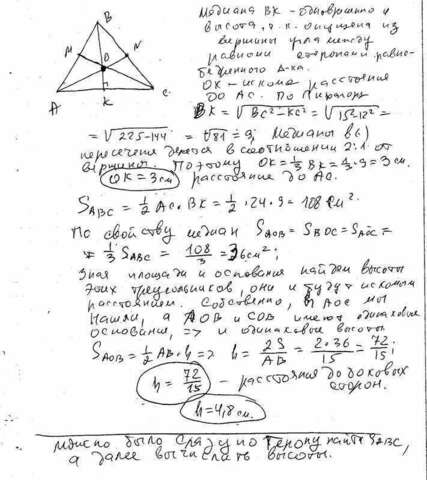 B
M N
O
A K C
Медиана BK - одновременно и
высота, т.к. опущена из
вершины угла между
равными сторонами равно-
бедренного Δ-ка.
OK - искомое расстояние
до AC. По Пифагору
BK = √BC²-KC² = √15²-12² =
= √225-144 = √81 = 9; Медианы в (·)
пересечения делятся в соотношении 2:1 от
вершины. Поэтому OK = 1/3 BK = 1/3 · 9 = 3 см.
OK = 3 см расстояние до AC.
S ABC = 1/2 AC · BK = 1/2 · 24 · 9 = 108 см².
По свойству медиан S AOB = S BOC = S AOC =
= 1/3 S ABC = 108/3 = 36 см²;
Зная площади и основания найдем высоты
этих треугольников, они и будут искомым
расстоянием. Собственно, в AOC мы
нашли, а AOB и COB имеют одинаковые
основания, => и одинаковые высоты
S AOB = 1/2 AB · h => h = 2S/AB = 2·36/15 = 72/15;
h = 72/15 - расстояния до боковых
сторон.
h = 4,8 см.
можно было сразу по Герону найти S ABC,
а далее вычислять высоты.